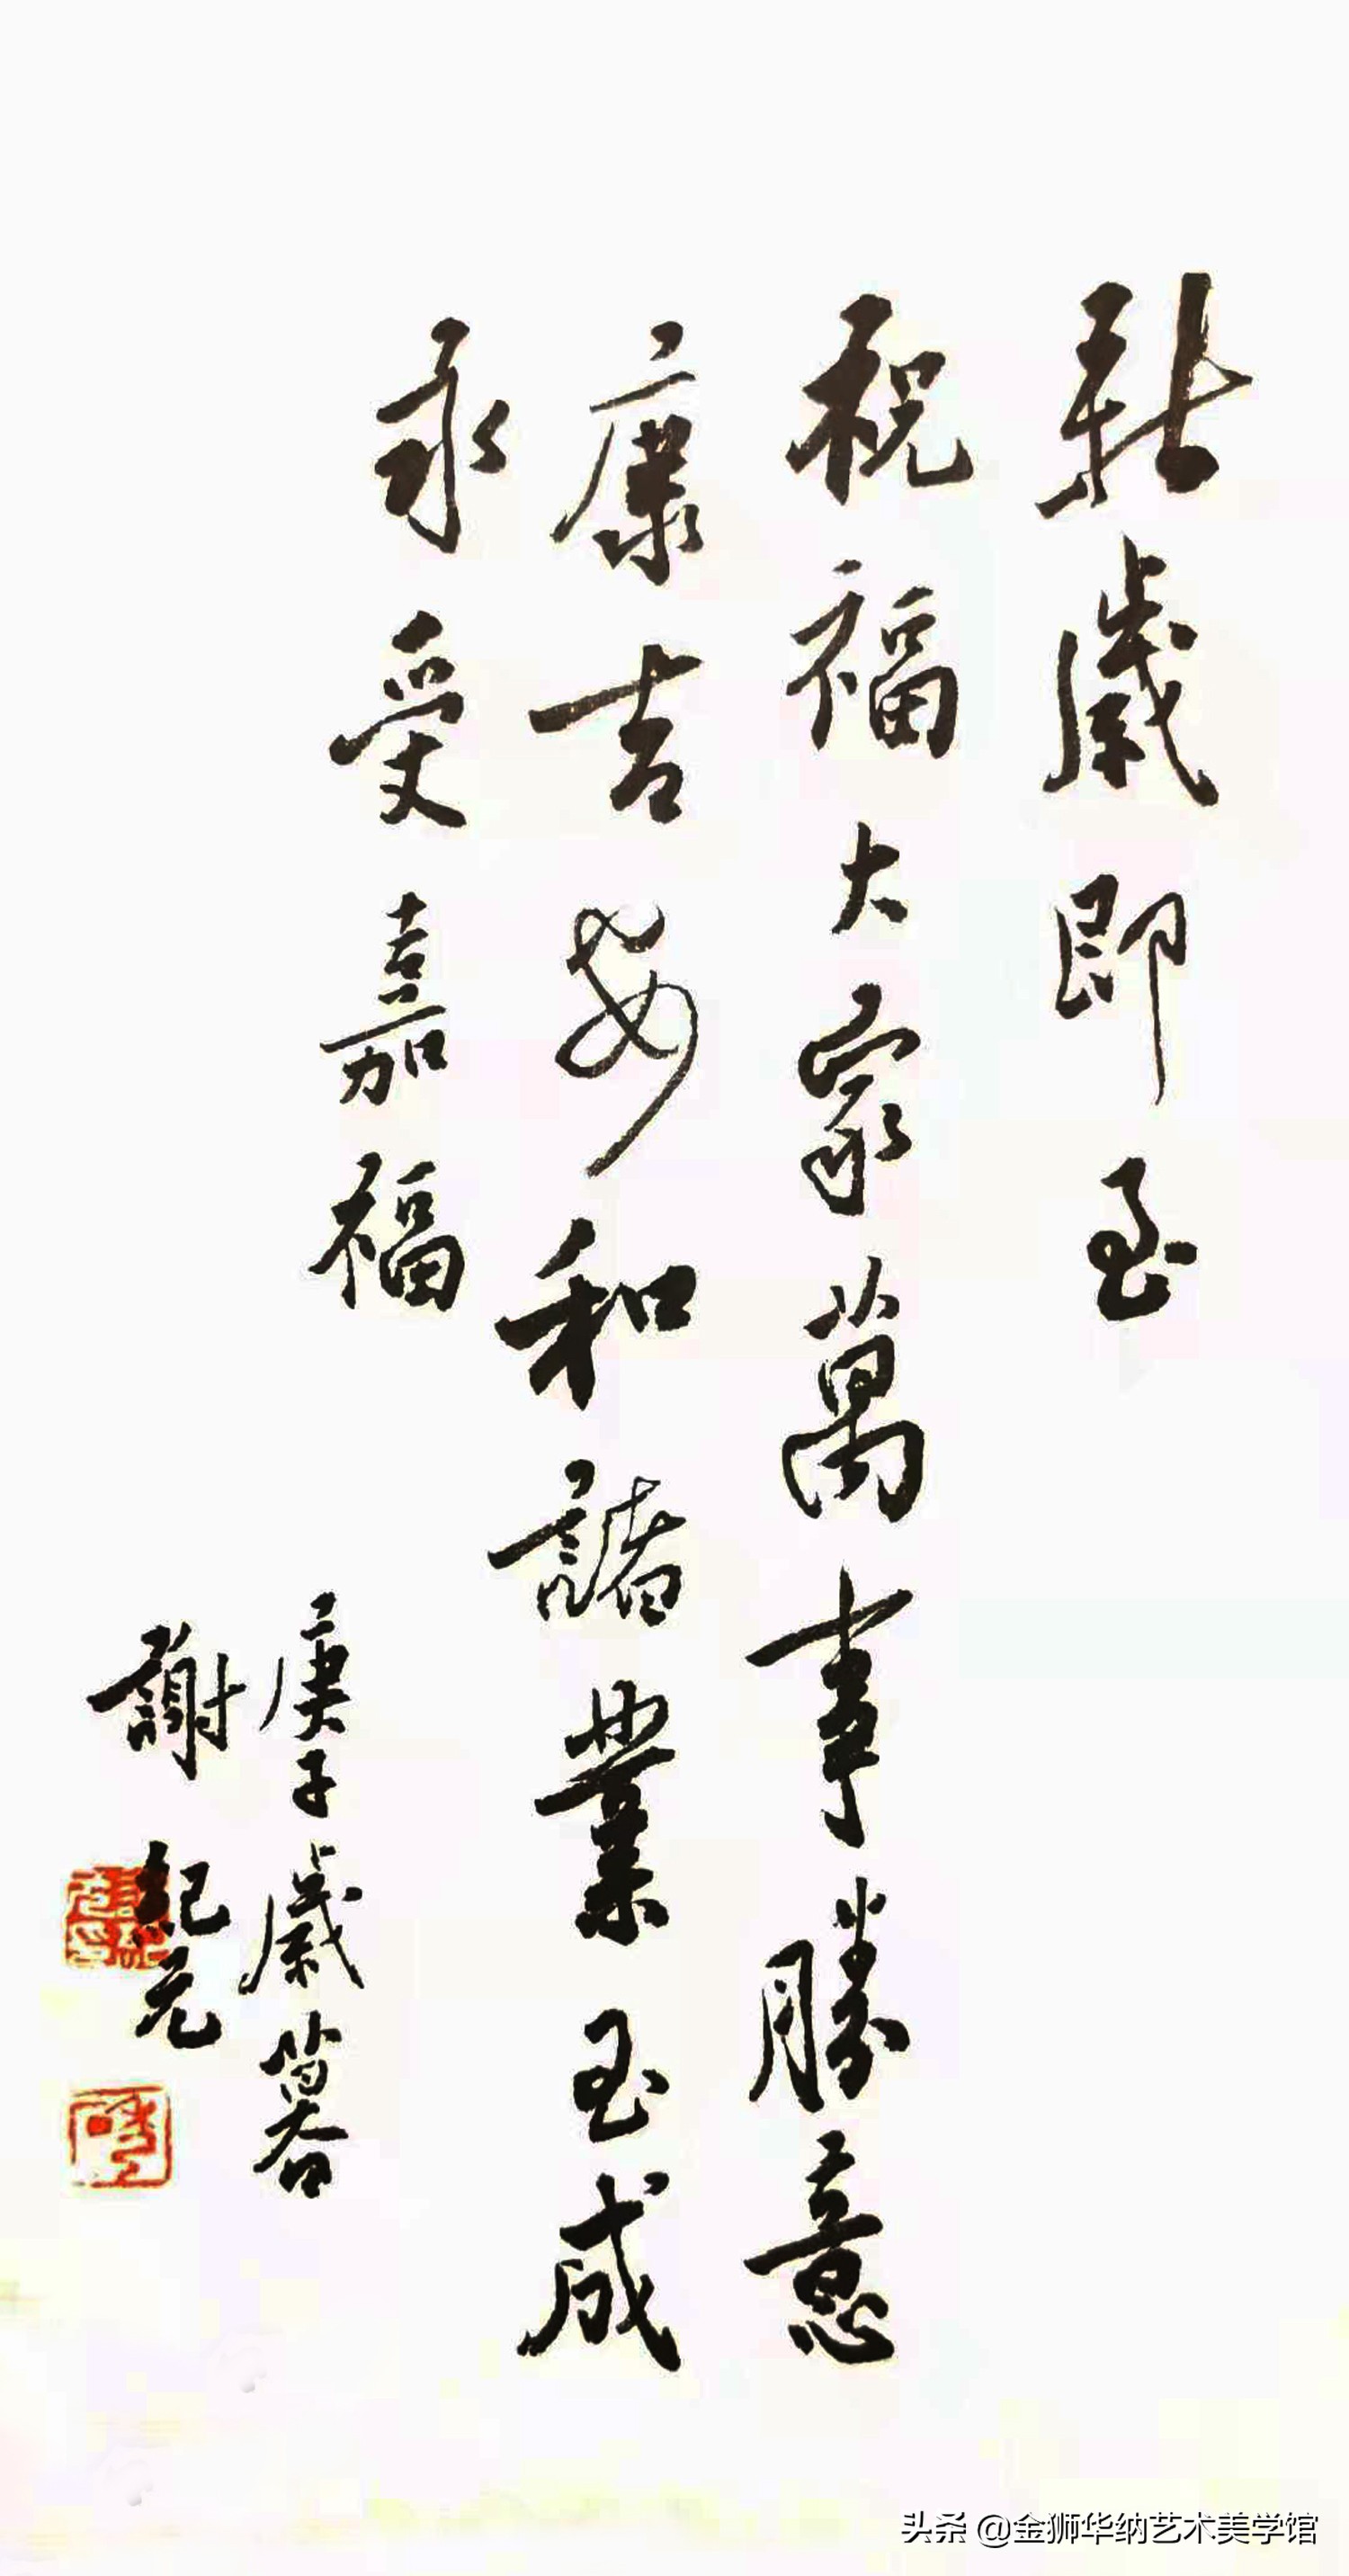 新歲即至
祝福大家萬事勝意
康吉安和諸業玉成
永受嘉福
庚子歲暮
謝紀元
头条 @金狮华纳艺术美学馆